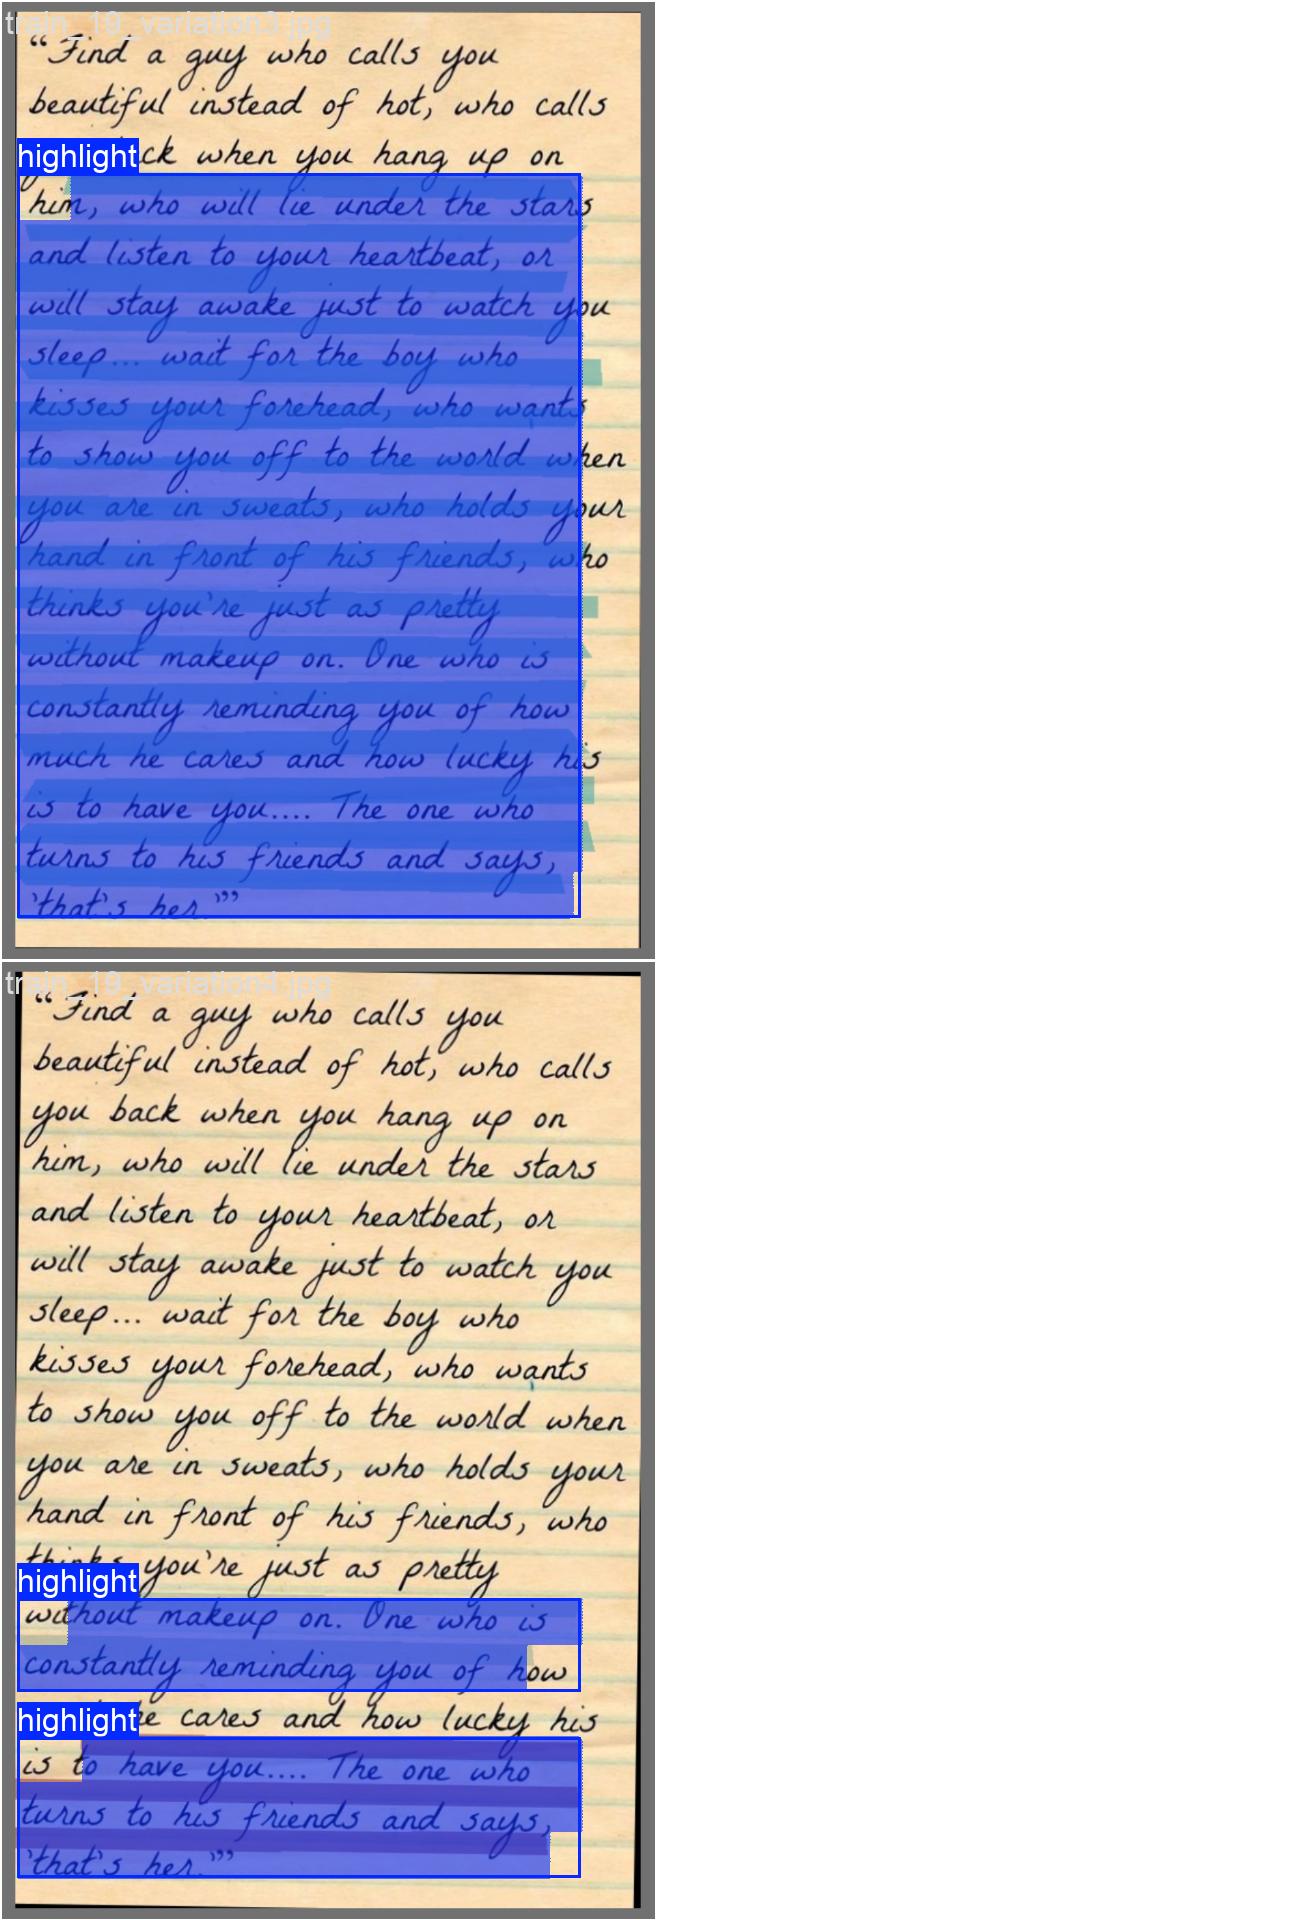 train_19_variation3.jpg
“Find a guy who calls you
beautiful instead of hot, who calls
highlight
ck when you hang up on
him, who will lie under the stars
and listen to your heartbeat, or
will stay awake just to watch you
sleep... wait for the boy who
kisses your forehead, who wants
to show you off to the world when
you are in sweats, who holds your
hand in front of his friends, who
thinks you're just as pretty
without makeup on. One who is
constantly reminding you of how
much he cares and how lucky his
is to have you.... The one who
turns to his friends and says,
'that's her.'”
train_19_variation4.jpg
“Find a guy who calls you
beautiful instead of hot, who calls
you back when you hang up on
him, who will lie under the stars
and listen to your heartbeat, or
will stay awake just to watch you
sleep... wait for the boy who
kisses your forehead, who wants
to show you off to the world when
you are in sweats, who holds your
hand in front of his friends, who
thinks you're just as pretty
highlight
without makeup on. One who is
constantly reminding you of how
highlight
cares and how lucky his
is to have you.... The one who
turns to his friends and says,
'that's her.'”